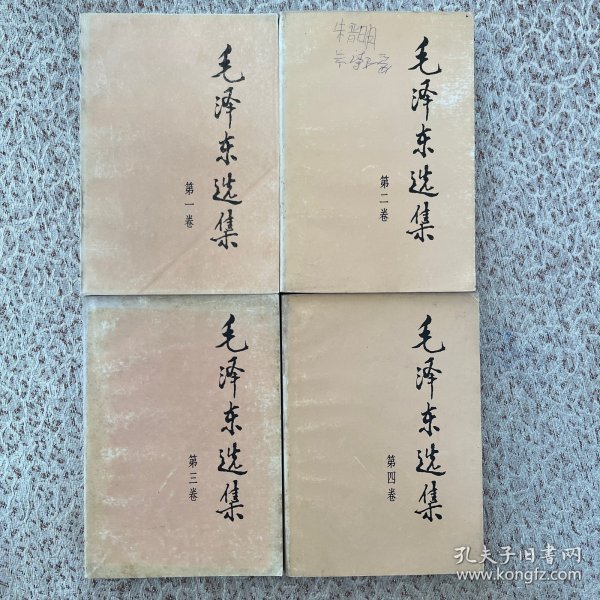 毛泽东选集
第一卷
朱晋明
毛泽东选集
第二卷
毛泽东选集
第三卷
毛泽东选集
第四卷
孔夫子旧书网
www.kongfz.com